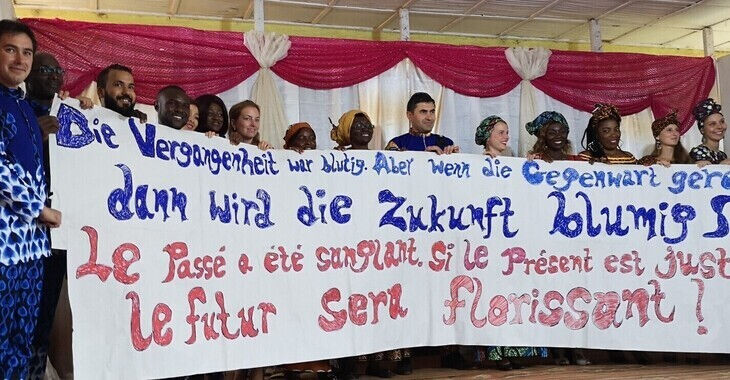 Die Vergangenheit war blutig. Aber wenn die Gegenwart gere
dann wird die Zukunft blumig S
Le Passé a été sanglant. Si le Présent est just
le futur sera florissant !